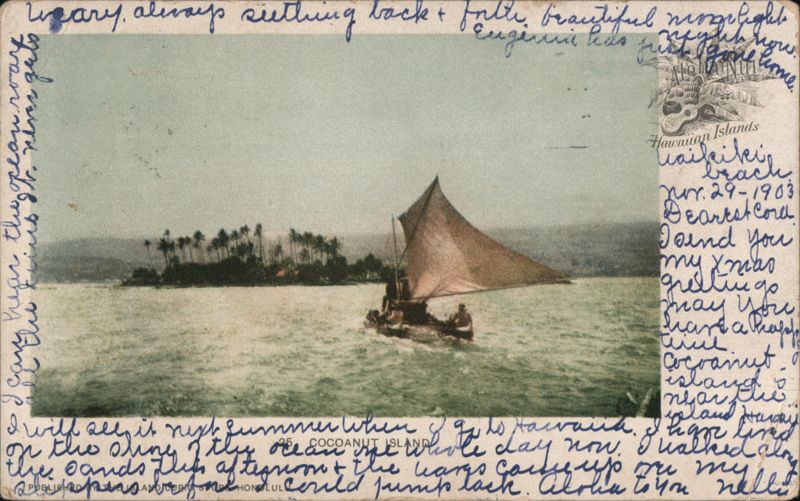 Aloha Nui
Hawaiian Islands
Waikiki
beach,
Nov. 29-1903
Dearest Cora
I send you
my Xmas
greetings
may you
have a happy
time
Cocoanut
island is
near the
island Hawaii
I will see it next summer when I go to Hawaii. I have lived
on the shore of the ocean one whole day now. I walked along
the sands this afternoon & the waves came up over my
feet before I could jump back. Aloha to you Nelli
I can hear the ocean roar
all the time. It never gets
weary, always seething back & forth beautiful moonlight
night now
Eugenie has just gone home.
25. COCOANUT ISLAND
PUBLISHED BY THE ISLAND CURIO STORE HONOLULU